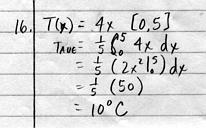 16. T(x) = 4x [0,5]
TAVE = 1/5 ∫₀⁵ 4x dx
= 1/5 (2x²|₀⁵) dx
= 1/5 (50)
= 10°C